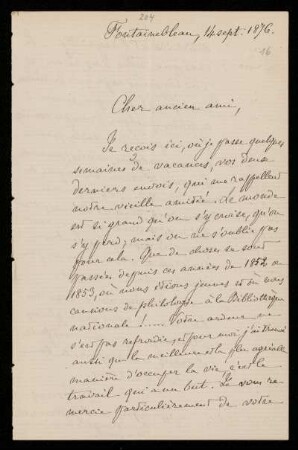 204
Fontainebleau, 14 sept. 1876.
16
Cher ancien ami,
Je reçois ici, où je passe quelques
semaines de vacances, vos deux
derniers envois, qui me rappellent
notre vieille amitié. Le monde
est si grand qu'on s'y croise, qu'on
s'y perd, mais on ne s'oublie pas
pour cela. Que de choses se sont
passées depuis ces années de 1852 et
1853, où nous étions jeunes et où nous
causions de philologie à la Bibliothèque
nationale !..... Votre ardeur ne
s'est pas refroidie, et pour moi, j'ai trouvé
aussi que la meilleure et la plus agréable
manière d'occuper la vie, c'est le
travail qui a un but. Je vous re-
mercie particulièrement de votre